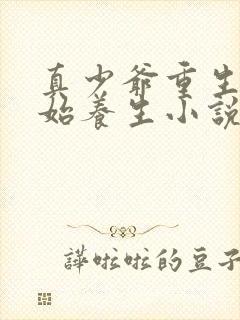 真少爺重生
始養生小說
譁啦啦的豆子